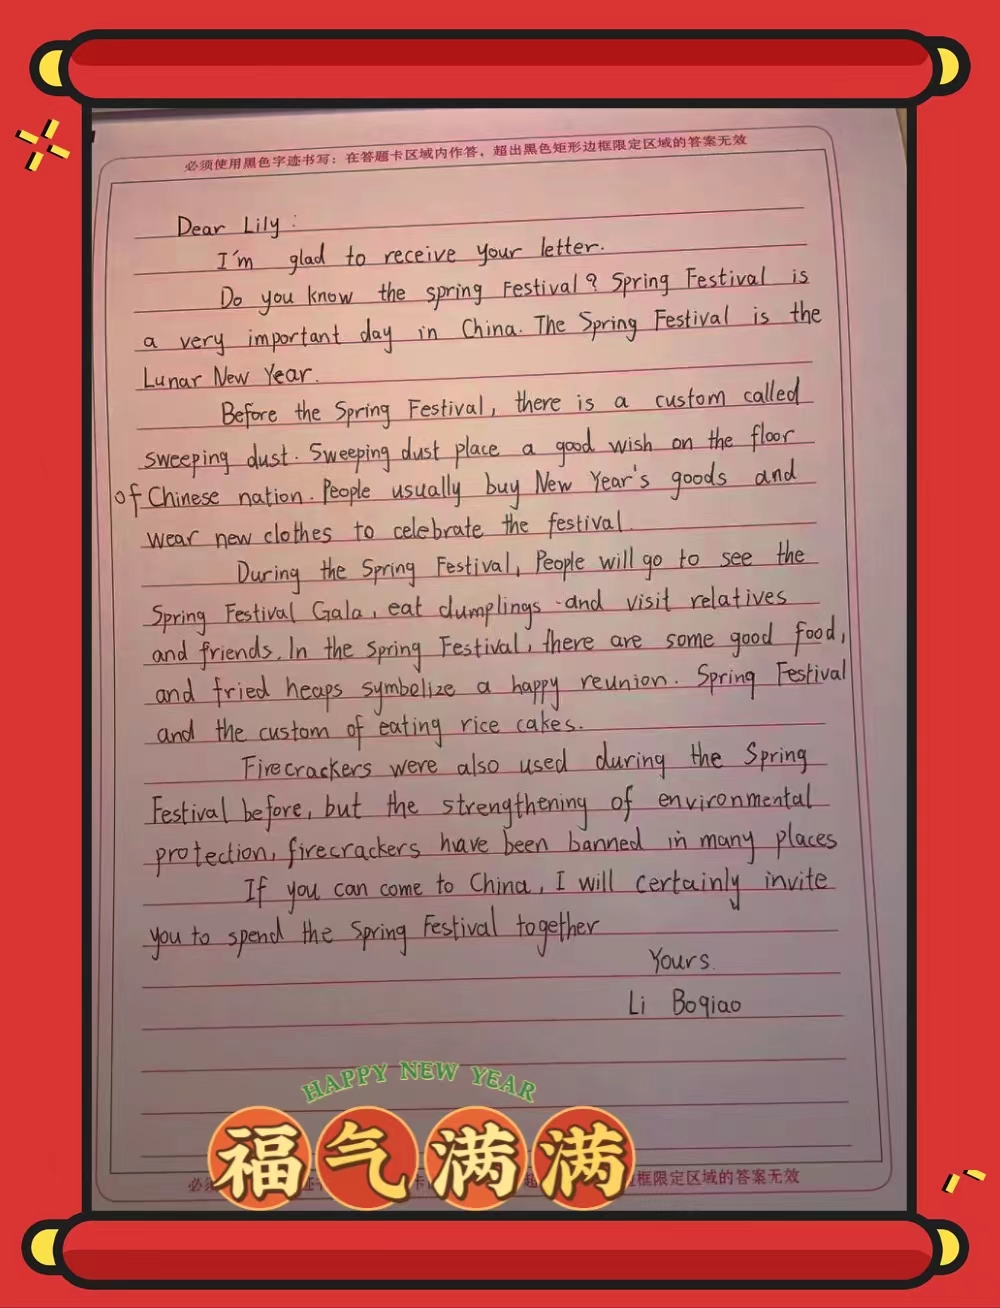 必须使用黑色字迹书写：在答题卡区域内作答，超出黑色矩形边框限定区域的答案无效
Dear Lily:
I'm glad to receive your letter.
Do you know the spring Festival? Spring Festival is
a very important day in China. The Spring Festival is the
Lunar New Year.
Before the Spring Festival, there is a custom called
sweeping dust. Sweeping dust place a good wish on the floor
of Chinese nation. People usually buy New Year's goods and
wear new clothes to celebrate the festival.
During the Spring Festival, People will go to see the
Spring Festival Gala, eat dumplings and visit relatives
and friends. In the Spring Festival, there are some good food,
and fried heaps symbolize a happy reunion. Spring Festival
and the custom of eating rice cakes.
Firecrackers were also used during the Spring
Festival before, but the strengthening of environmental
protection, firecrackers have been banned in many places
If you can come to China, I will certainly invite
you to spend the Spring Festival together
Yours.
Li Boqiao
HAPPY NEW YEAR
福气满满
框限定区域的答案无效